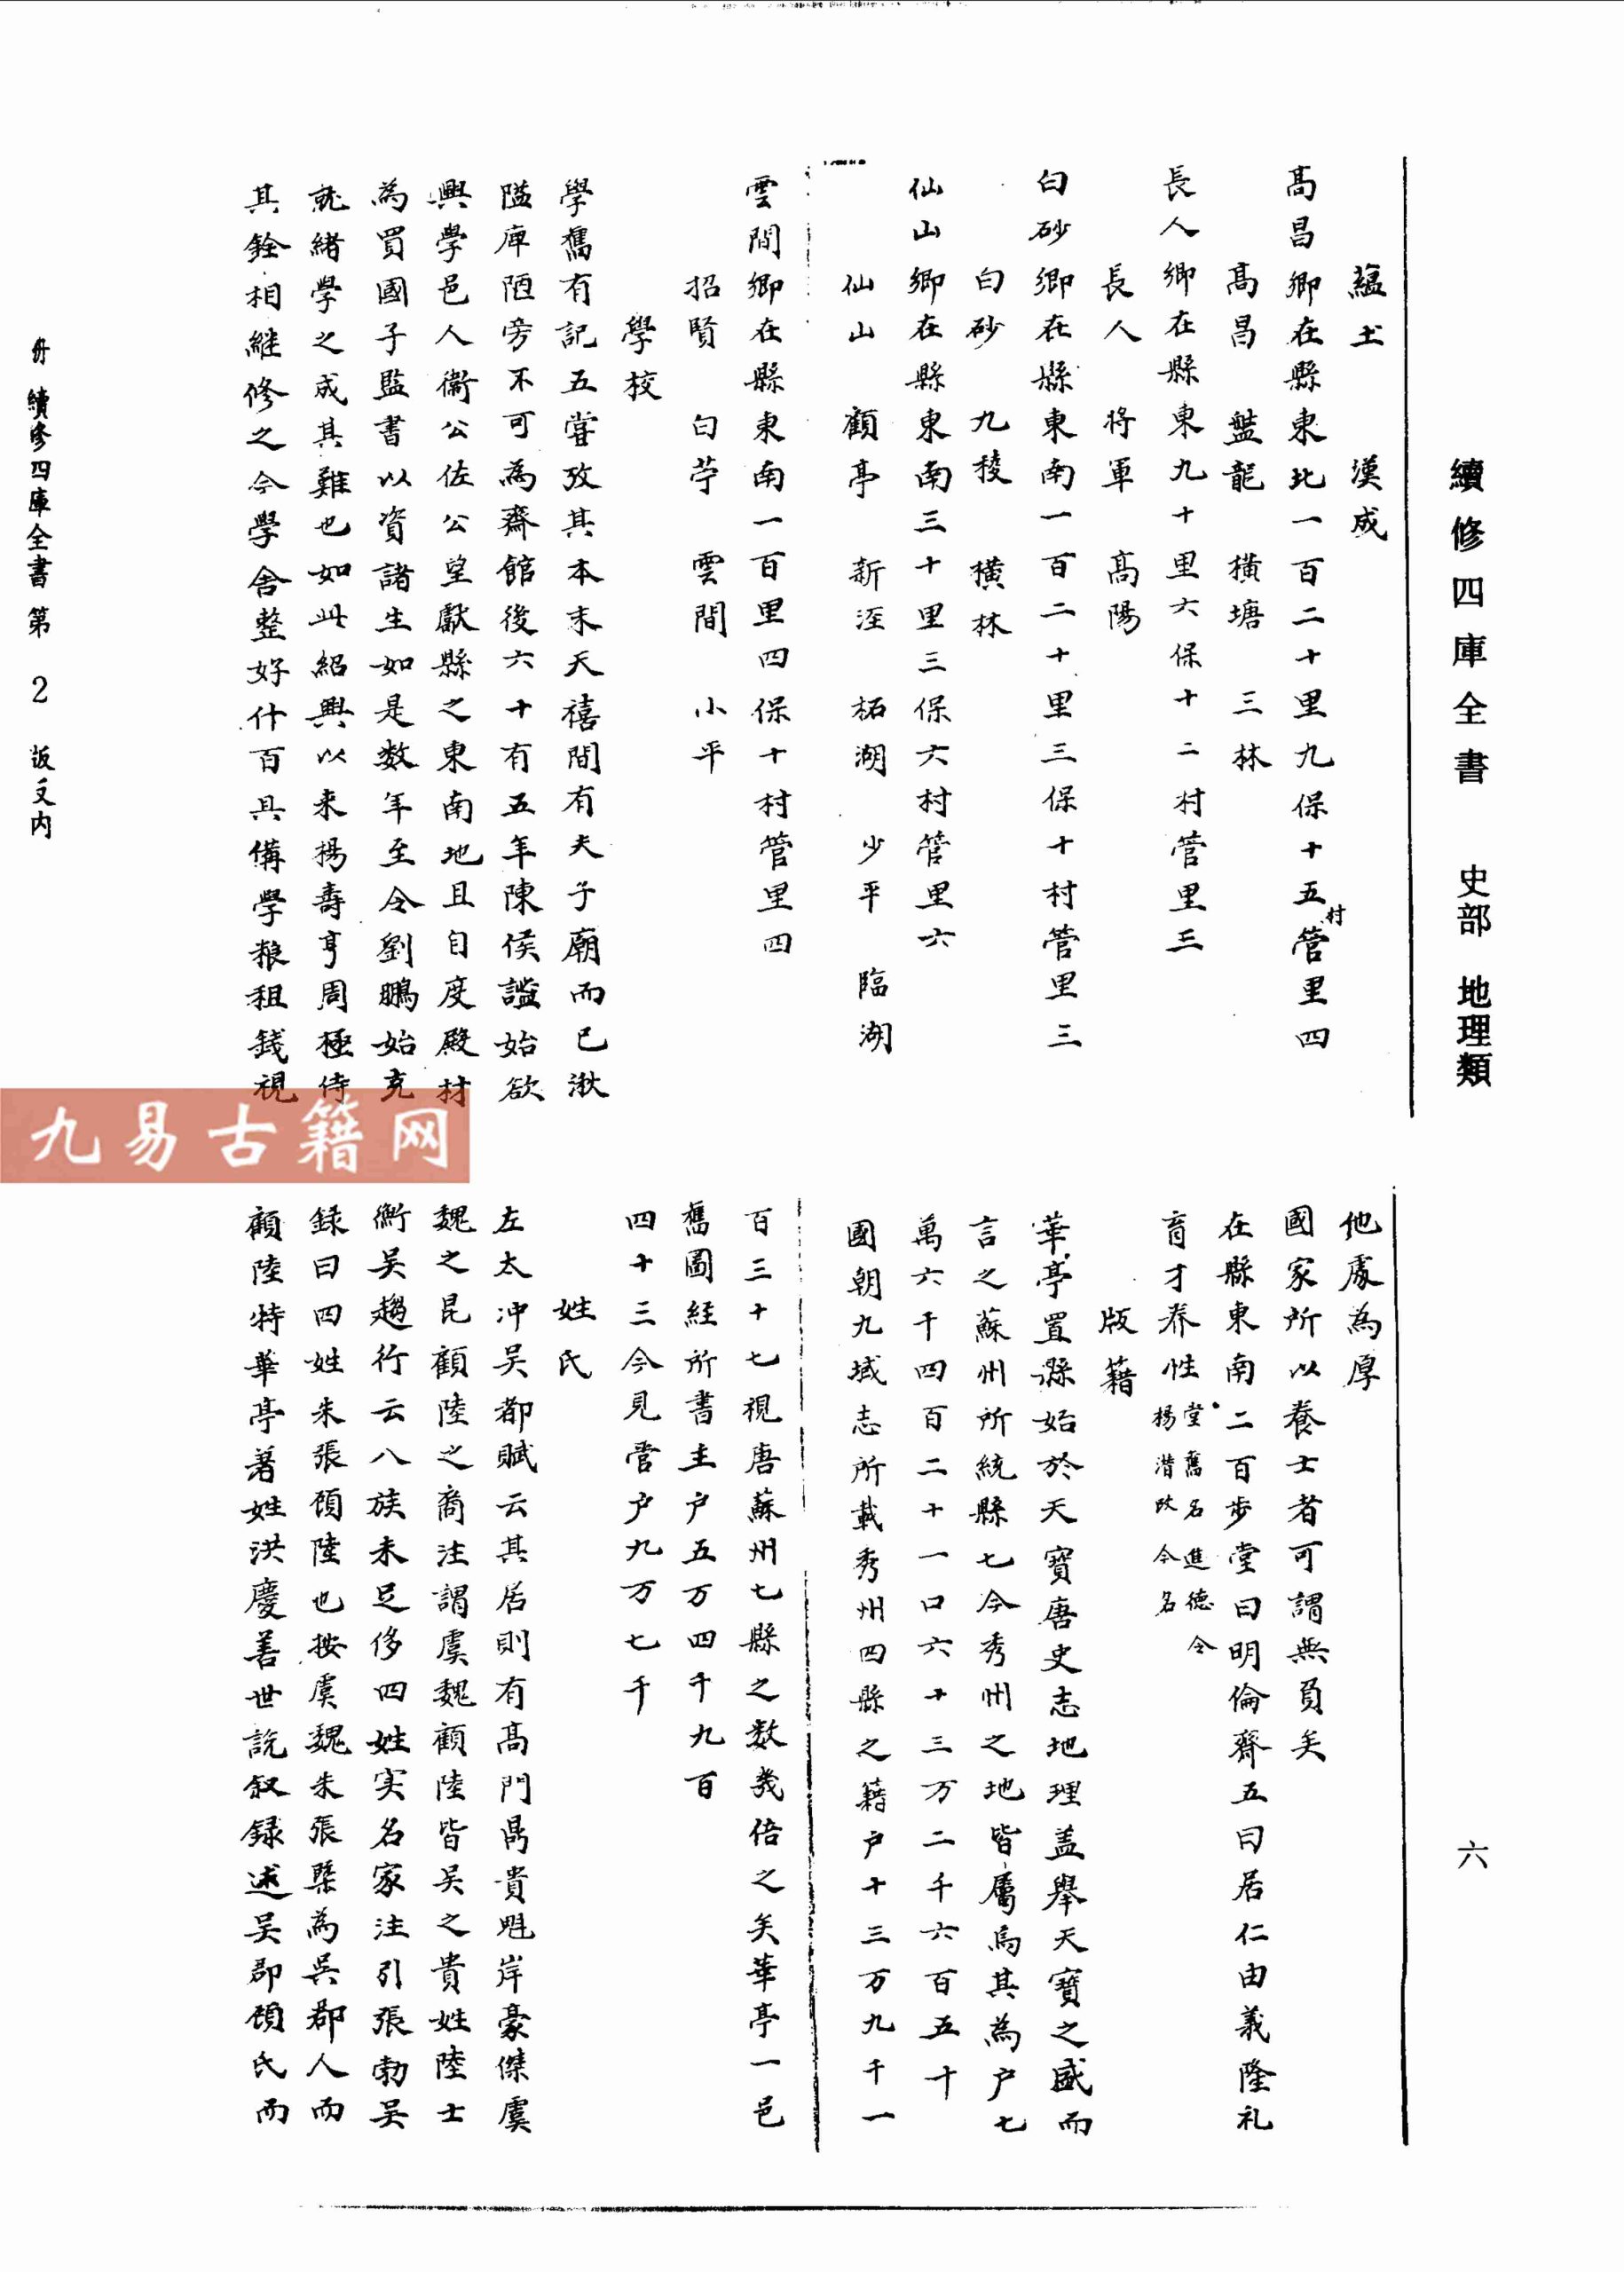 續修四庫全書　史部　地理類
六
蕰土　漢成
髙昌鄉在縣東北一百二十里九保十五村管里四
髙昌　盤龍　橫塘　三林
長人鄉在縣東九十里六保十二村管里三
長人　将軍　髙陽
白砂鄉在縣東南一百二十里三保十村管里三
白砂　九稜　橫林
仙山鄉在縣東南三十里三保六村管里六
仙山　顧亭　新涇　柘湖　少平　臨湖
雲間鄉在縣東南一百里四保十村管里四
招賢　白苧　雲間　小平
學校
學舊有記五嘗攷其本末天禧間有夫子廟而已湫
隘庳陋旁不可為齋館後六十有五年陳侯謐始欲
興學邑人衞公佐公望獻縣之東南地且自度殿材
為買國子監書以資諸生如是数年至令劉鵬始克
就緒學之成其難也如此紹興以来揚壽亨周極侍
其銓相継修之今學舍整好什百具俻學粮租錢視
他處為厚
國家所以養士者可謂無負矣
在縣東南二百步堂曰明倫齋五曰居仁由義隆礼
育才养性堂舊名進德令
楊潜改今名
版籍
華亭置縣始於天寶唐史志地理盖舉天寶之盛而
言之蘇州所統縣七今秀州之地皆屬焉其為户七
萬六千四百二十一口六十三万二千六百五十
國朝九域志所載秀州四縣之籍户十三万九千一
百三十七視唐蘇州七縣之数幾倍之矣華亭一邑
舊圖經所書主户五万四千九百
四十三今見管户九万七千
姓氏
左太冲吴都賦云其居則有髙門鼎貴魁岸豪傑虞
魏之昆顧陸之裔注謂虞魏顧陸皆吴之貴姓陸士
衡吴趨行云八族未足侈四姓实名家注引張勃吴
録曰四姓朱張顧陸也按虞魏朱張槩為吴郡人而
顧陸特華亭著姓洪慶善世説叙録述吴郡顧氏而
舟　續修四庫全書第　2　版文内
九易古籍网